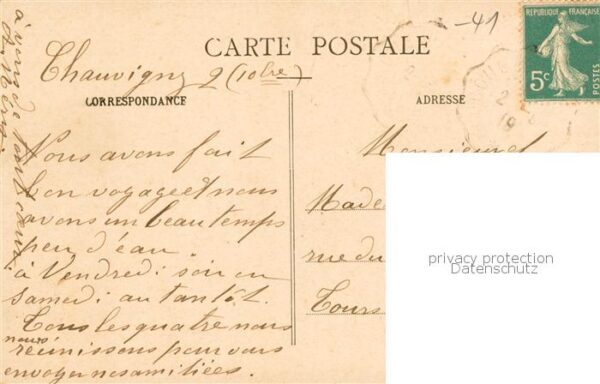 -41
RÉPUBLIQUE FRANÇAISE
5c
POSTES
CARTE POSTALE
Chauvigny 2 (10bre)
CORRESPONDANCE
ADRESSE
Nous avons fait
bon voyage et nous
avons un beau temps
peu d'eau.
à Vendredi soir ou
samedi au tantôt.
Tous les quatre nous
nous
réunissons pour vous
envoyer nos amitiées.
à vous de tout cœur
Monsieur et
Made
rue du
Tours
privacy protection
Datenschutz